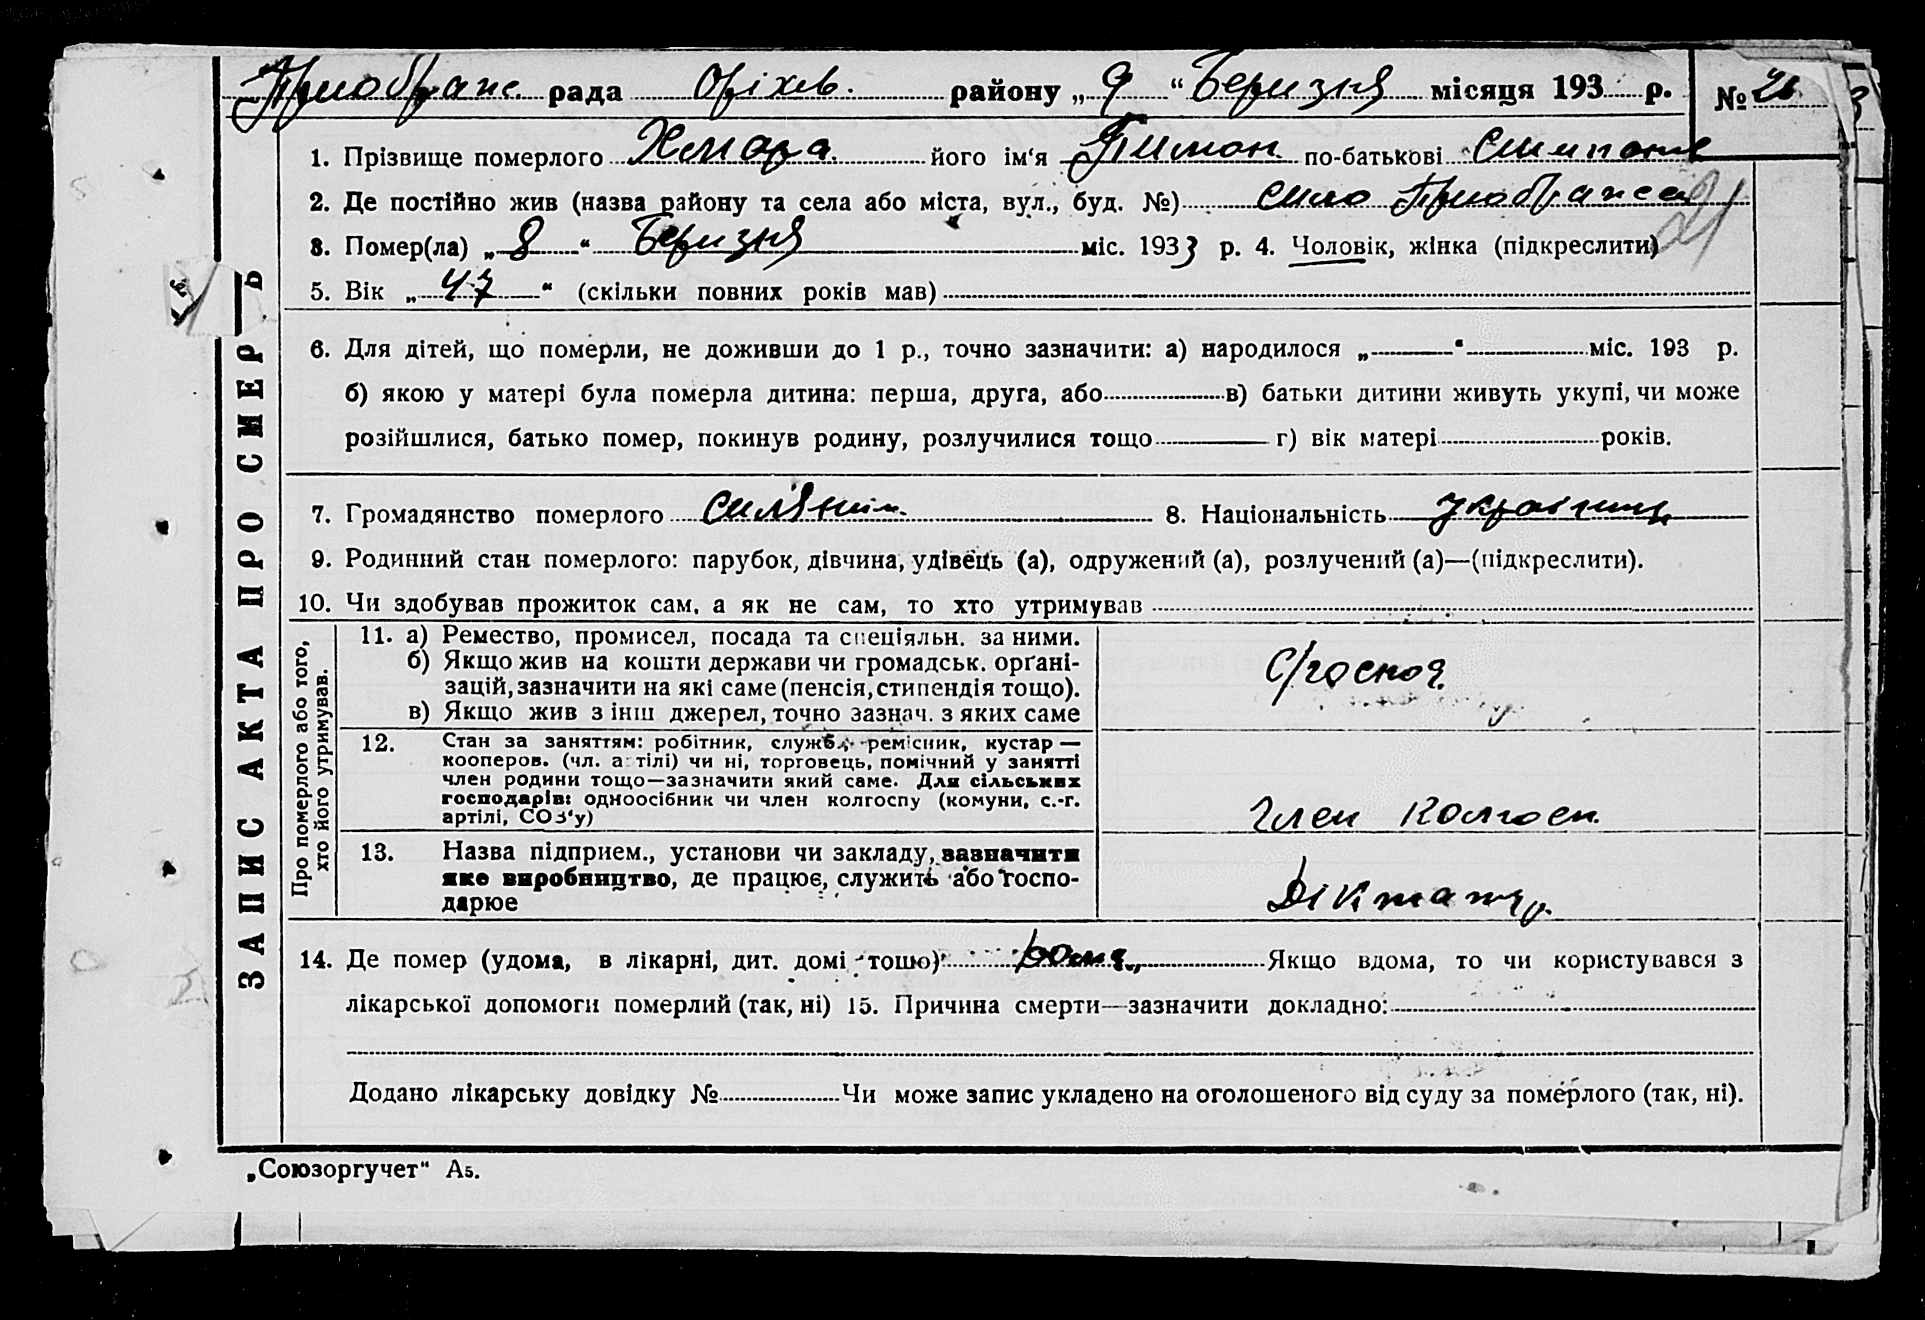 Приображс. рада Оріхів. району „ 9 “ Беризня місяця 193 р. №
1. Прізвище померлого Хмара його ім‘я Тимон по-батькові
2. Де постійно жив (назва району та села або міста, вул., буд. №) сило
3. Помер(ла) „ 8 “ Беризня міс. 1933 р. 4. Чоловік, жінка (підкреслити)
21
5. Вік „ 47 “ (скільки повних років мав)
6. Для дітей, що померли, не доживши до 1 р., точно зазначити: а) народилося „ “ міс. 193 р.
б) якою у матері була померла дитина: перша, друга, або в) батьки дитини живуть укупі, чи може
розійшлися, батько помер, покинув родину, розлучилися тощо г) вік матері років.
7. Громадянство померлого силянин 8. Національність українець
9. Родинний стан померлого: парубок, дівчина, удівець (а), одружений (а), розлучений (а)—(підкреслити).
10. Чи здобував прожиток сам, а як не сам, то хто утримував
Про померлого або того, хто його утримував.
11. а) Ремество, промисел, посада та спеціяльн. за ними.
б) Якщо жив на кошти держави чи громадськ. орґані-
зацій, зазначити на які саме (пенсія, стипендія тощо).
в) Якщо жив з інш джерел, точно зазнач. з яких саме
С/господ.
12. Стан за заняттям: робітник, служб., ремісник, кустар —
кооперов. (чл. артілі) чи ні, торговець, помічний у занятті
член родини тощо—зазначити який саме. Для сільських
господарів: одноосібник чи член колгоспу (комуни, с.-г.
артілі, СОЗ‘у)
Член колгосп.
13. Назва підприєм., установи чи закладу, зазначити
яке виробництво, де працює, служить або госпо-
дарює
Діктатур.
14. Де помер (удома, в лікарні, дит. домі тощо) Дома Якщо вдома, то чи користувався з
лікарської допомоги померлий (так, ні) 15. Причина смерти—зазначити докладно:
Додано лікарську довідку № Чи може запис укладено на оголошеного від суду за померлого (так, ні).
ЗАПИС АКТА ПРО СМЕРТЬ
„Союзоргучет“ А5.